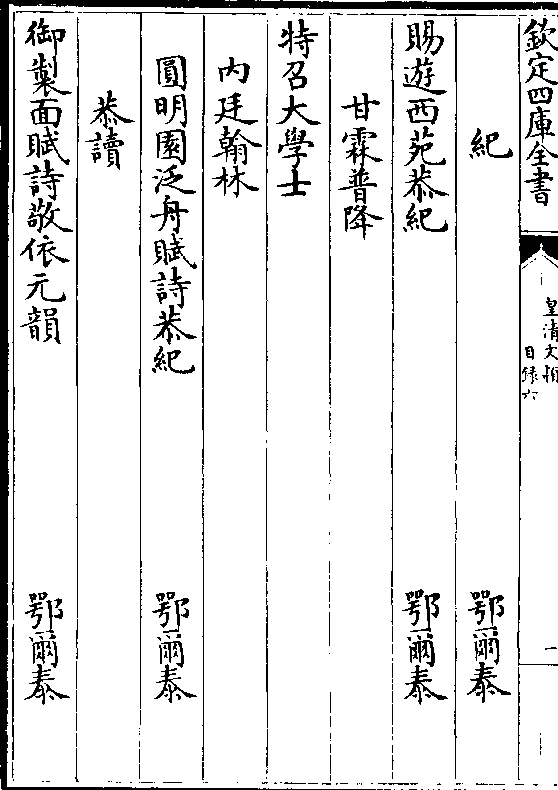 欽定四庫全書
皇清文頴
目錄六
一
紀　鄂爾泰
賜遊西苑恭紀　鄂爾泰
甘霖普降
特召大學士
内廷翰林
圓明園泛舟賦詩恭紀　鄂爾泰
恭讀
御製面賦詩敬依元韻　鄂爾泰